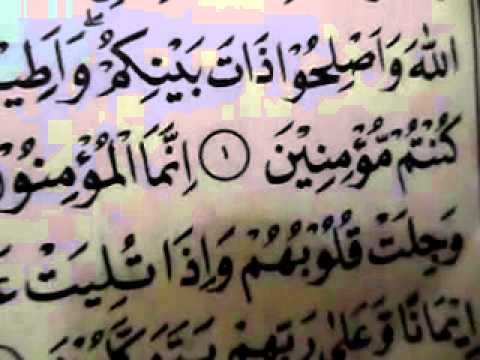 اللهَ وَاَصْلِحُوْا ذَاتَ بَيْنِكُمْ ۖ وَاَطِيْ
كُنْتُمْ مُّؤْمِنِيْنَ ۝١ اِنَّمَا الْمُؤْمِنُوْنَ
وَجِلَتْ قُلُوْبُهُمْ وَاِذَا تُلِيَتْ عَ
اِيْمَانًا وَّعَلٰى رَبِّهِمْ يَتَوَكَّلُوْنَ